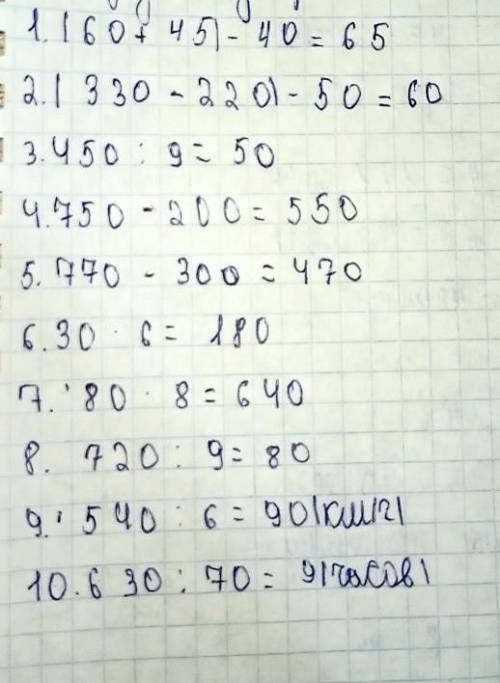 1. (60 + 45) - 40 = 65
2. (330 - 220) - 50 = 60
3. 450 : 9 = 50
4. 750 - 200 = 550
5. 770 - 300 = 470
6. 30 · 6 = 180
7. 80 · 8 = 640
8. 720 : 9 = 80
9. 540 : 6 = 90 (км/ч)
10. 630 : 70 = 9 (часов)